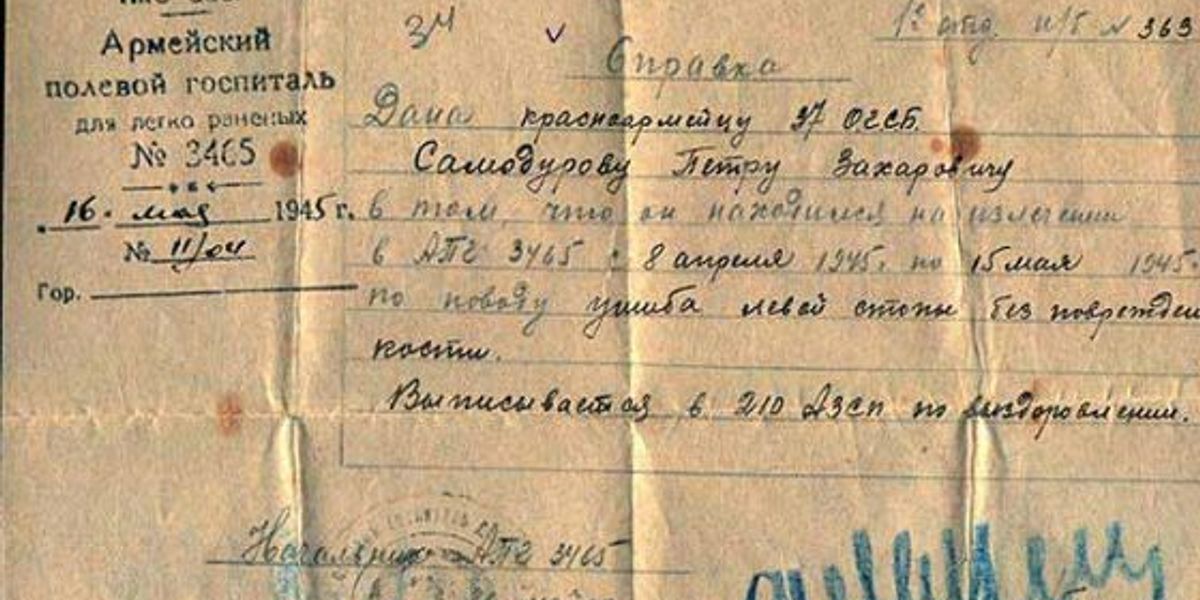 34
1е отд. и/б № 363
Армейский
полевой госпиталь
для легко раненых
№ 3465
16. мая 1945 г.
№ 11/04
Гор.
Справка
Дана красноармейцу 37 ОГСБ.
Самодурову Петру Захаровичу
в том, что он находился на излечении
в АПГ 3465 с 8 апреля 1945. по 15 мая 1945.
по поводу ушиба левой стопы без поврежден
кости.
Выписывается в 210 АЗСП по выздоровлении.
Начальник АПГ 3465